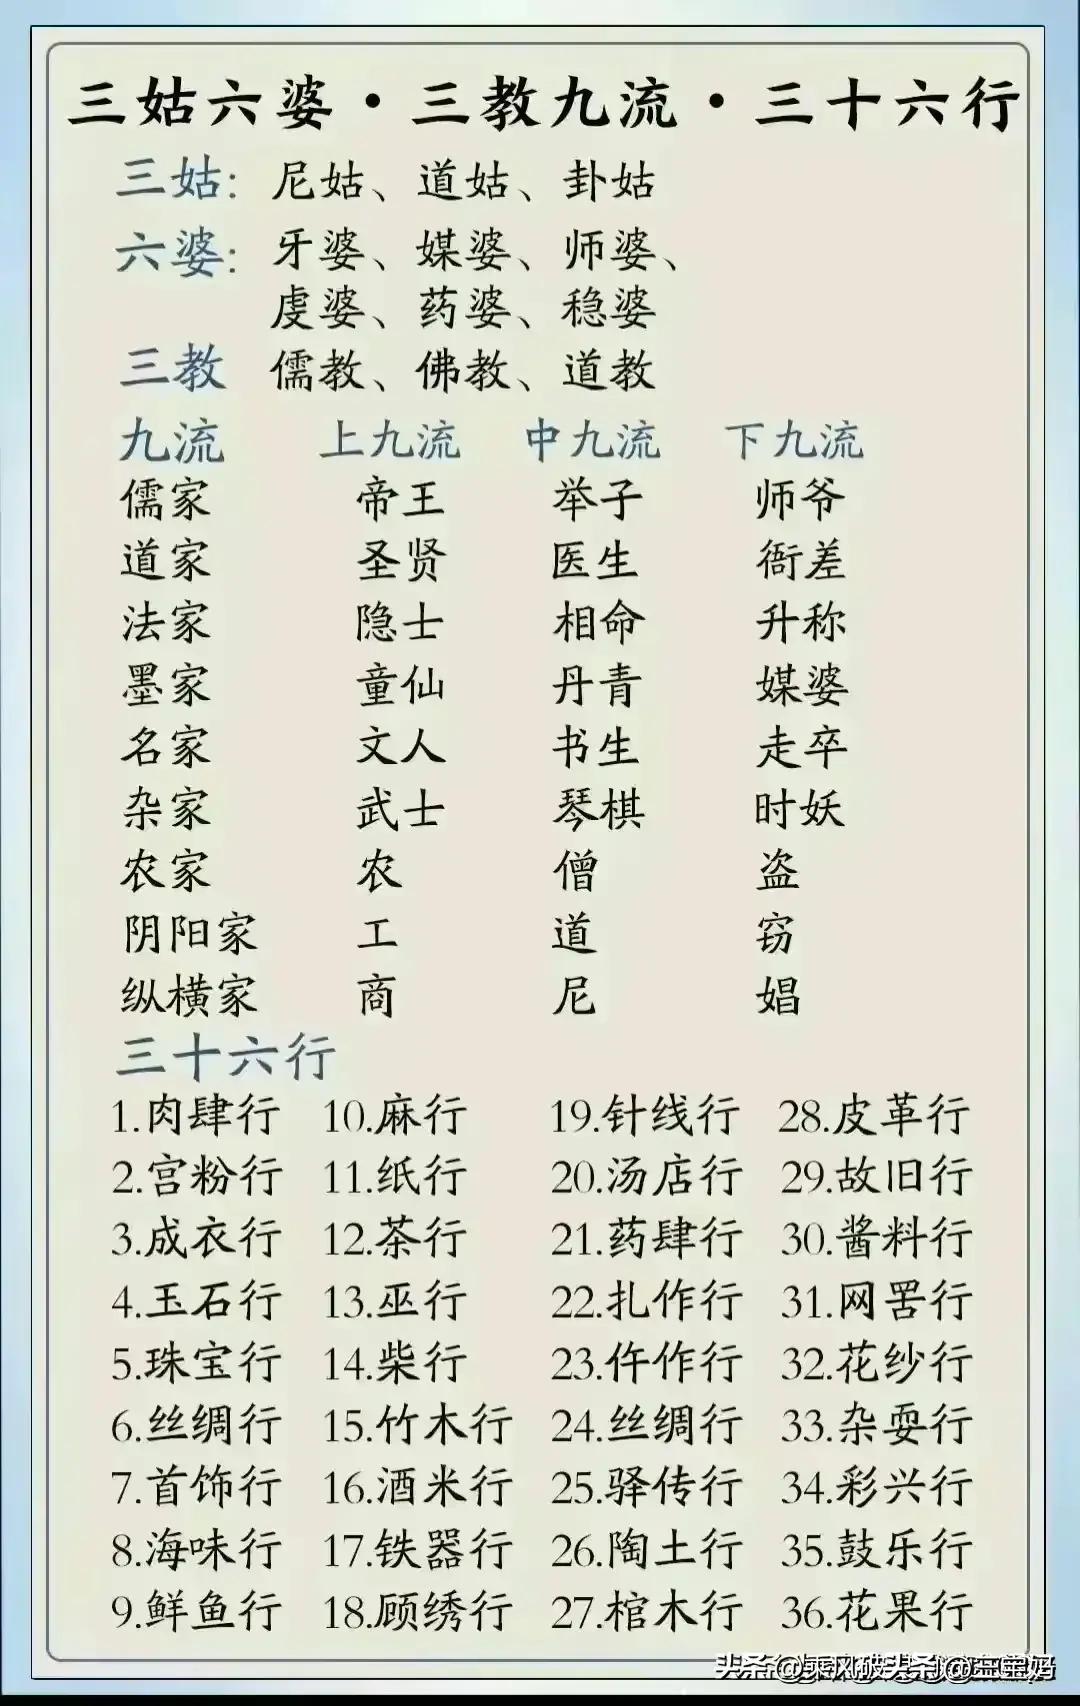 三姑六婆·三教九流·三十六行
三姑: 尼姑、道姑、卦姑
六婆: 牙婆、媒婆、师婆、
虔婆、药婆、稳婆
三教 儒教、佛教、道教
九流 上九流 中九流 下九流
儒家 帝王 举子 师爷
道家 圣贤 医生 衙差
法家 隐士 相命 升称
墨家 童仙 丹青 媒婆
名家 文人 书生 走卒
杂家 武士 琴棋 时妖
农家 农 僧 盗
阴阳家 工 道 窃
纵横家 商 尼 娼
三十六行
1.肉肆行 10.麻行 19.针线行 28.皮革行
2.宫粉行 11.纸行 20.汤店行 29.故旧行
3.成衣行 12.茶行 21.药肆行 30.酱料行
4.玉石行 13.巫行 22.扎作行 31.网罟行
5.珠宝行 14.柴行 23.仵作行 32.花纱行
6.丝绸行 15.竹木行 24.丝绸行 33.杂耍行
7.首饰行 16.酒米行 25.驿传行 34.彩兴行
8.海味行 17.铁器行 26.陶土行 35.鼓乐行
9.鲜鱼行 18.顾绣行 27.棺木行 36.花果行
头条@乘风破